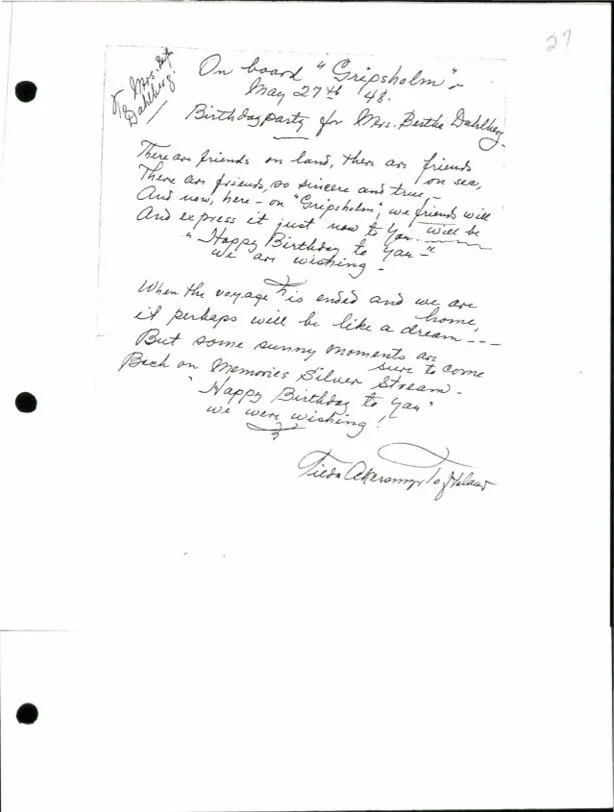 27
To Mrs.
Dahlberg.
On board "Gripsholm" -
May 27th /48.
Birthday party for Mrs. Berthe Dahlberg.
There are friends on land, there are friends
on sea,
There are friends, so sincere and true, -
And now, here - on "Gripsholm", we friends will
And express it just now to You. will be
"Happy Birthday to You"
We are wishing -
When the voyage is ended and we are
home,
it perhaps will be like a dream - - -
But some sunny moments are
sure to come
Back on Memories Silver Stream -
"Happy Birthday to You"
we were wishing!